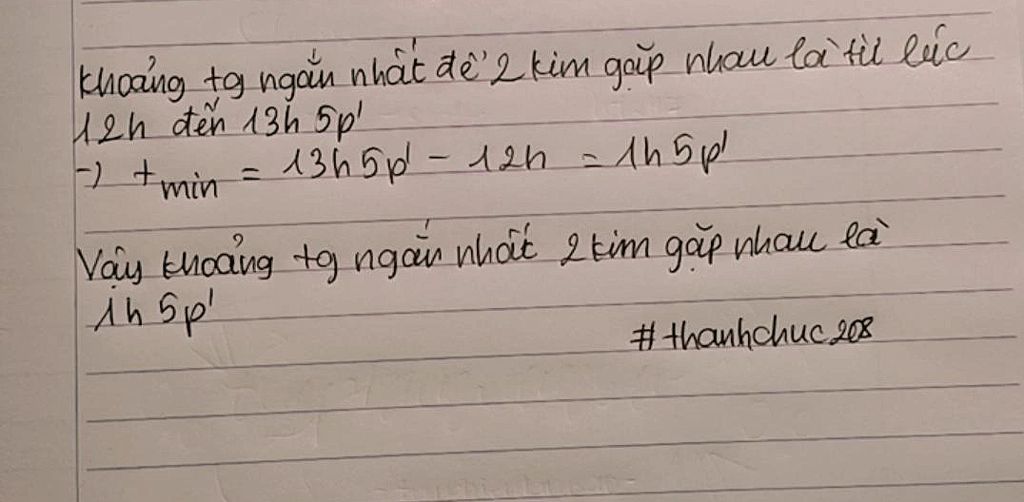 Khoảng tg ngắn nhất để 2 kim gặp nhau là từ lúc
12h đến 13h 5p'
→ t min = 13h5p' - 12h = 1h5p'
Vậy khoảng tg ngắn nhất 2 kim gặp nhau là
1h 5p'
# thanhchuc208